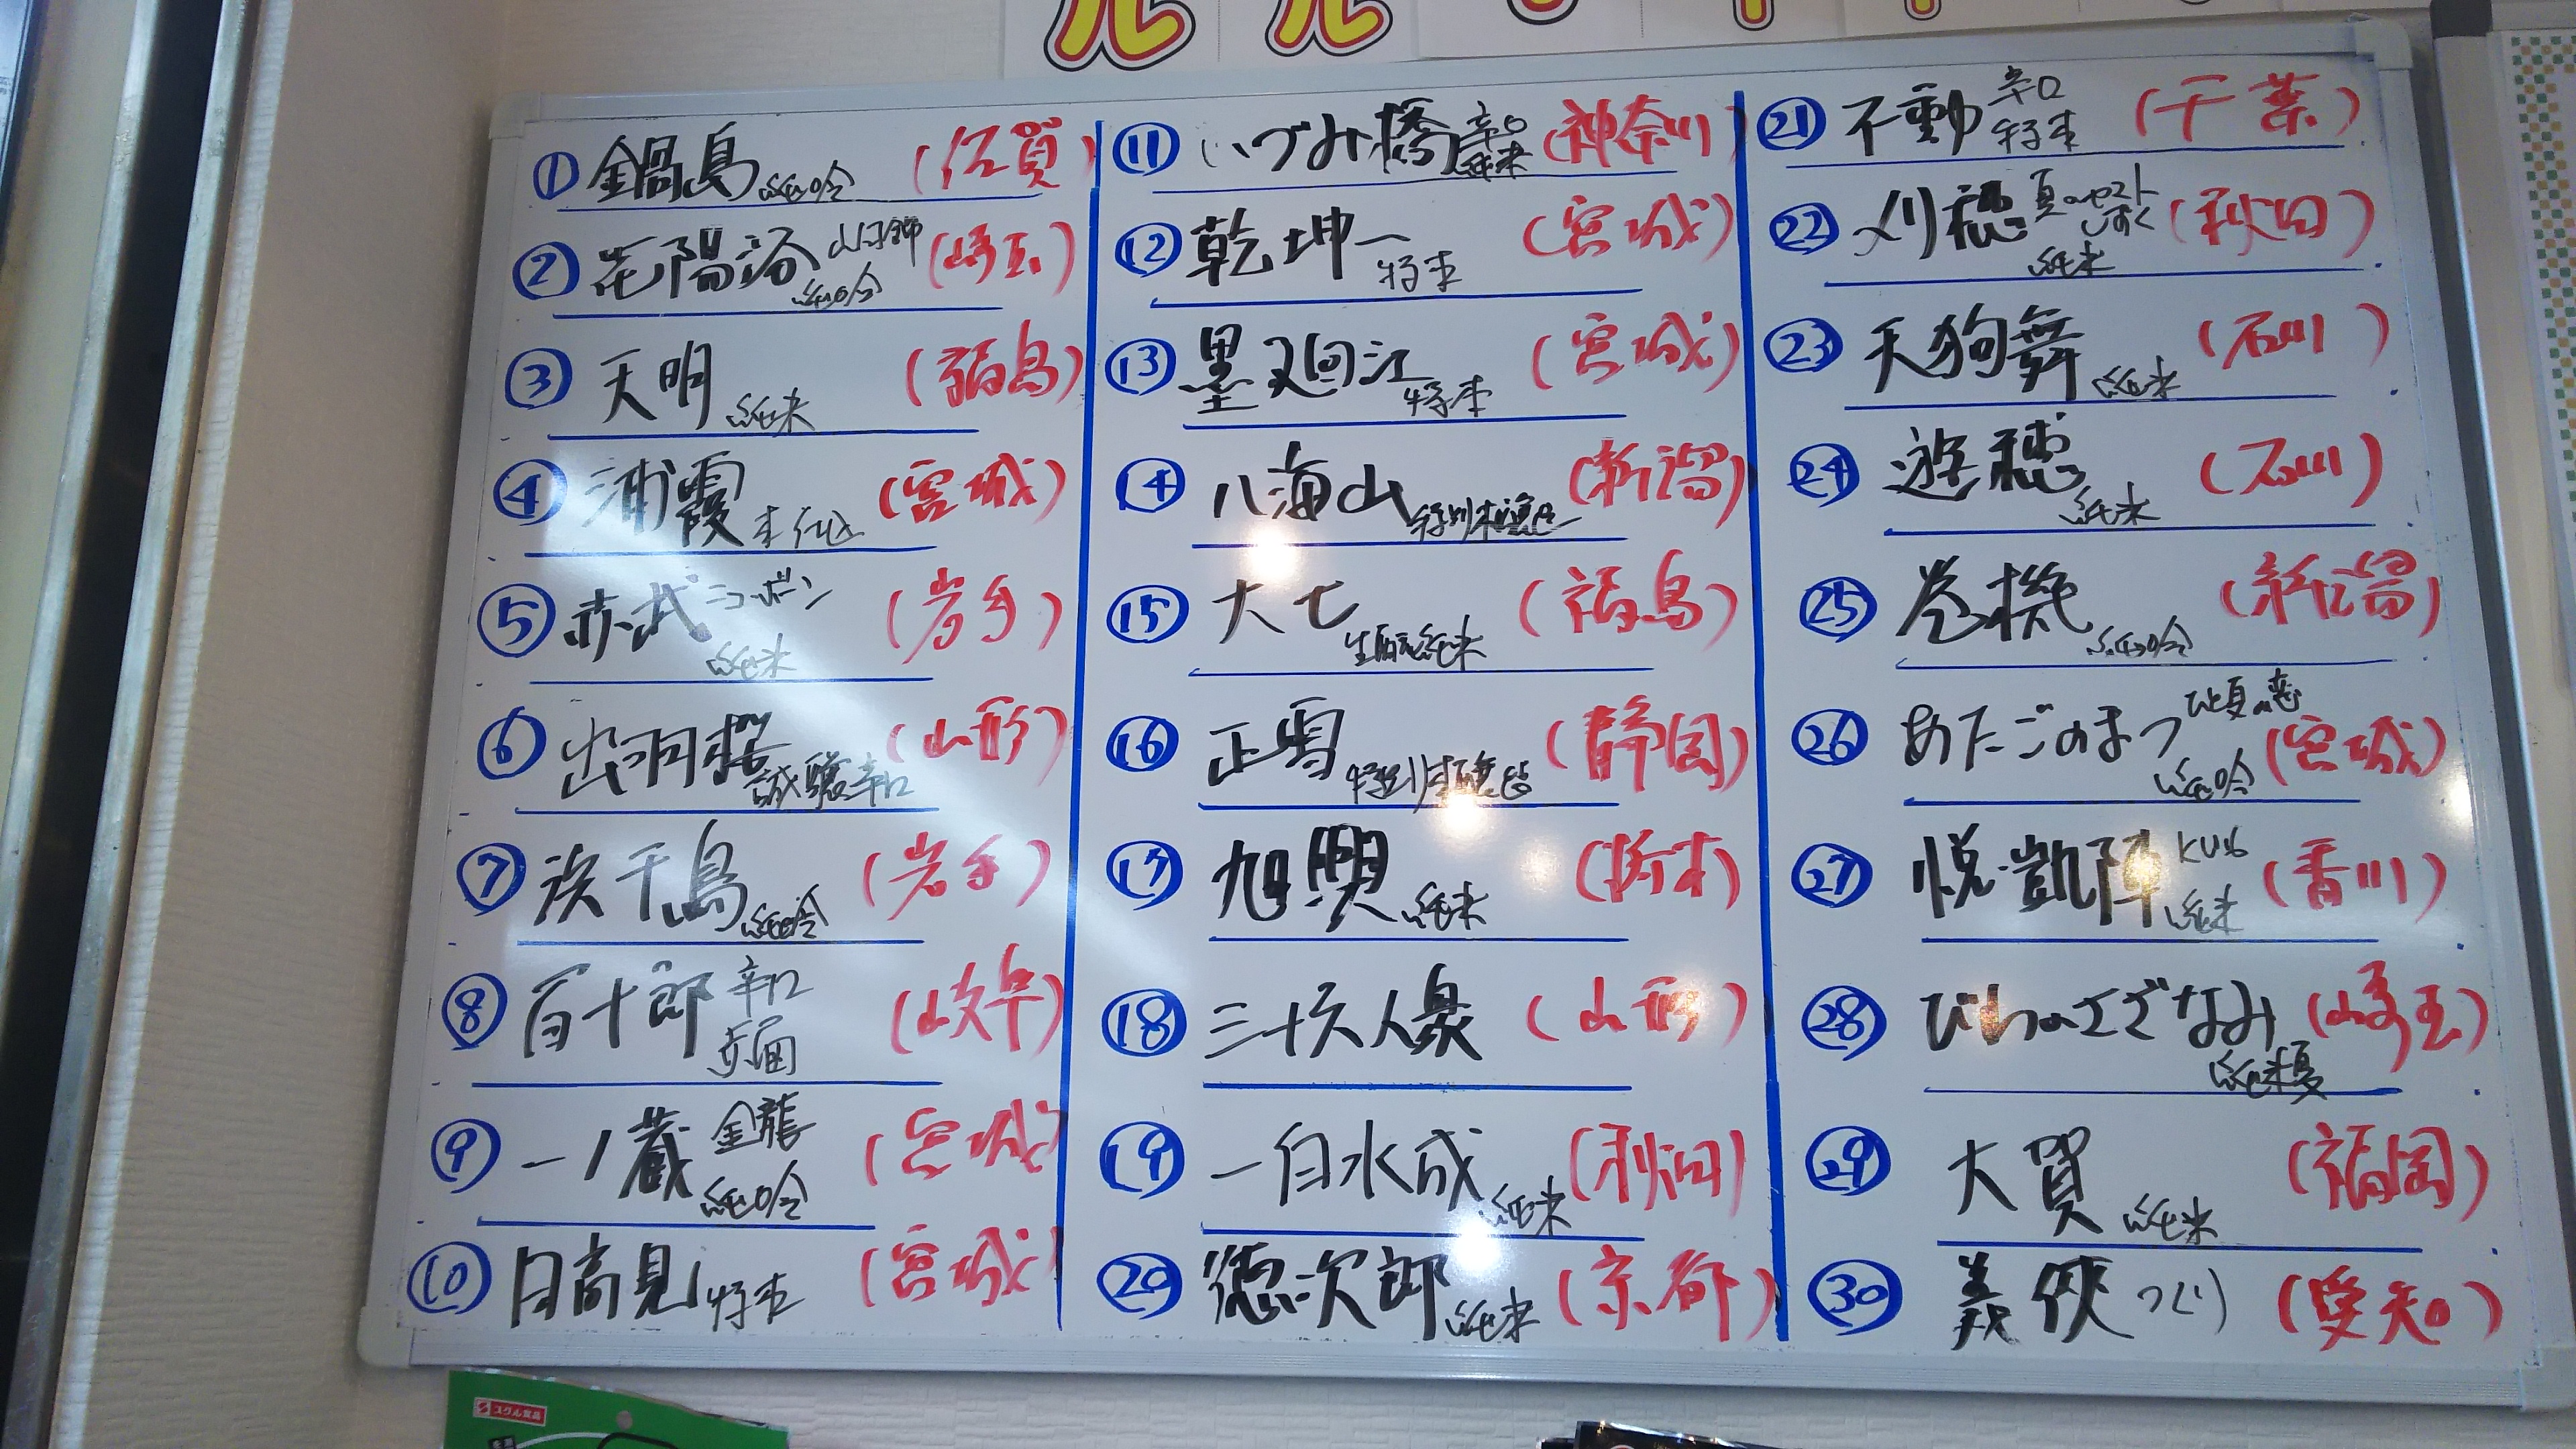 ① 鍋島 純吟 (佐賀)
② 花陽浴 山田錦 純吟 (埼玉)
③ 天明 純米 (福島)
④ 浦霞 本仕込 (宮城)
⑤ 赤武 ニューボーン 純米 (岩手)
⑥ 出羽桜 誠醸辛口 (山形)
⑦ 浜千鳥 純吟 (岩手)
⑧ 百十郎 辛口 (岐阜)
⑨ 一ノ蔵 金龍 純吟 (宮城)
⑩ 日高見 特本 (宮城)
⑪ いづみ橋 辛口 純米 (神奈川)
⑫ 乾坤一 特本 (宮城)
⑬ 墨廼江 特本 (宮城)
⑭ 八海山 特別本醸造 (新潟)
⑮ 大七 生酛純米 (福島)
⑯ 正雪 特別本醸造 (静岡)
⑰ 旭興 純米 (栃木)
⑱ 三十六人衆 (山形)
⑲ 一白水成 純米 (秋田)
⑳ 徳次郎 純米 (京都)
㉑ 不動 辛口 特本 (千葉)
㉒ 刈穂 夏のしずく 純米 (秋田)
㉓ 天狗舞 純米 (石川)
㉔ 遊穂 純米 (石川)
㉕ 巻機 純吟 (新潟)
㉖ あたごのまつ ひと夏の恋 純吟 (宮城)
㉗ 悦凱陣 KU16 純米 (香川)
㉘ びわのさざなみ 純米夏 (埼玉)
㉙ 大賀 純米 (福岡)
㉚ 義侠 つくり (愛知)
スグル食品